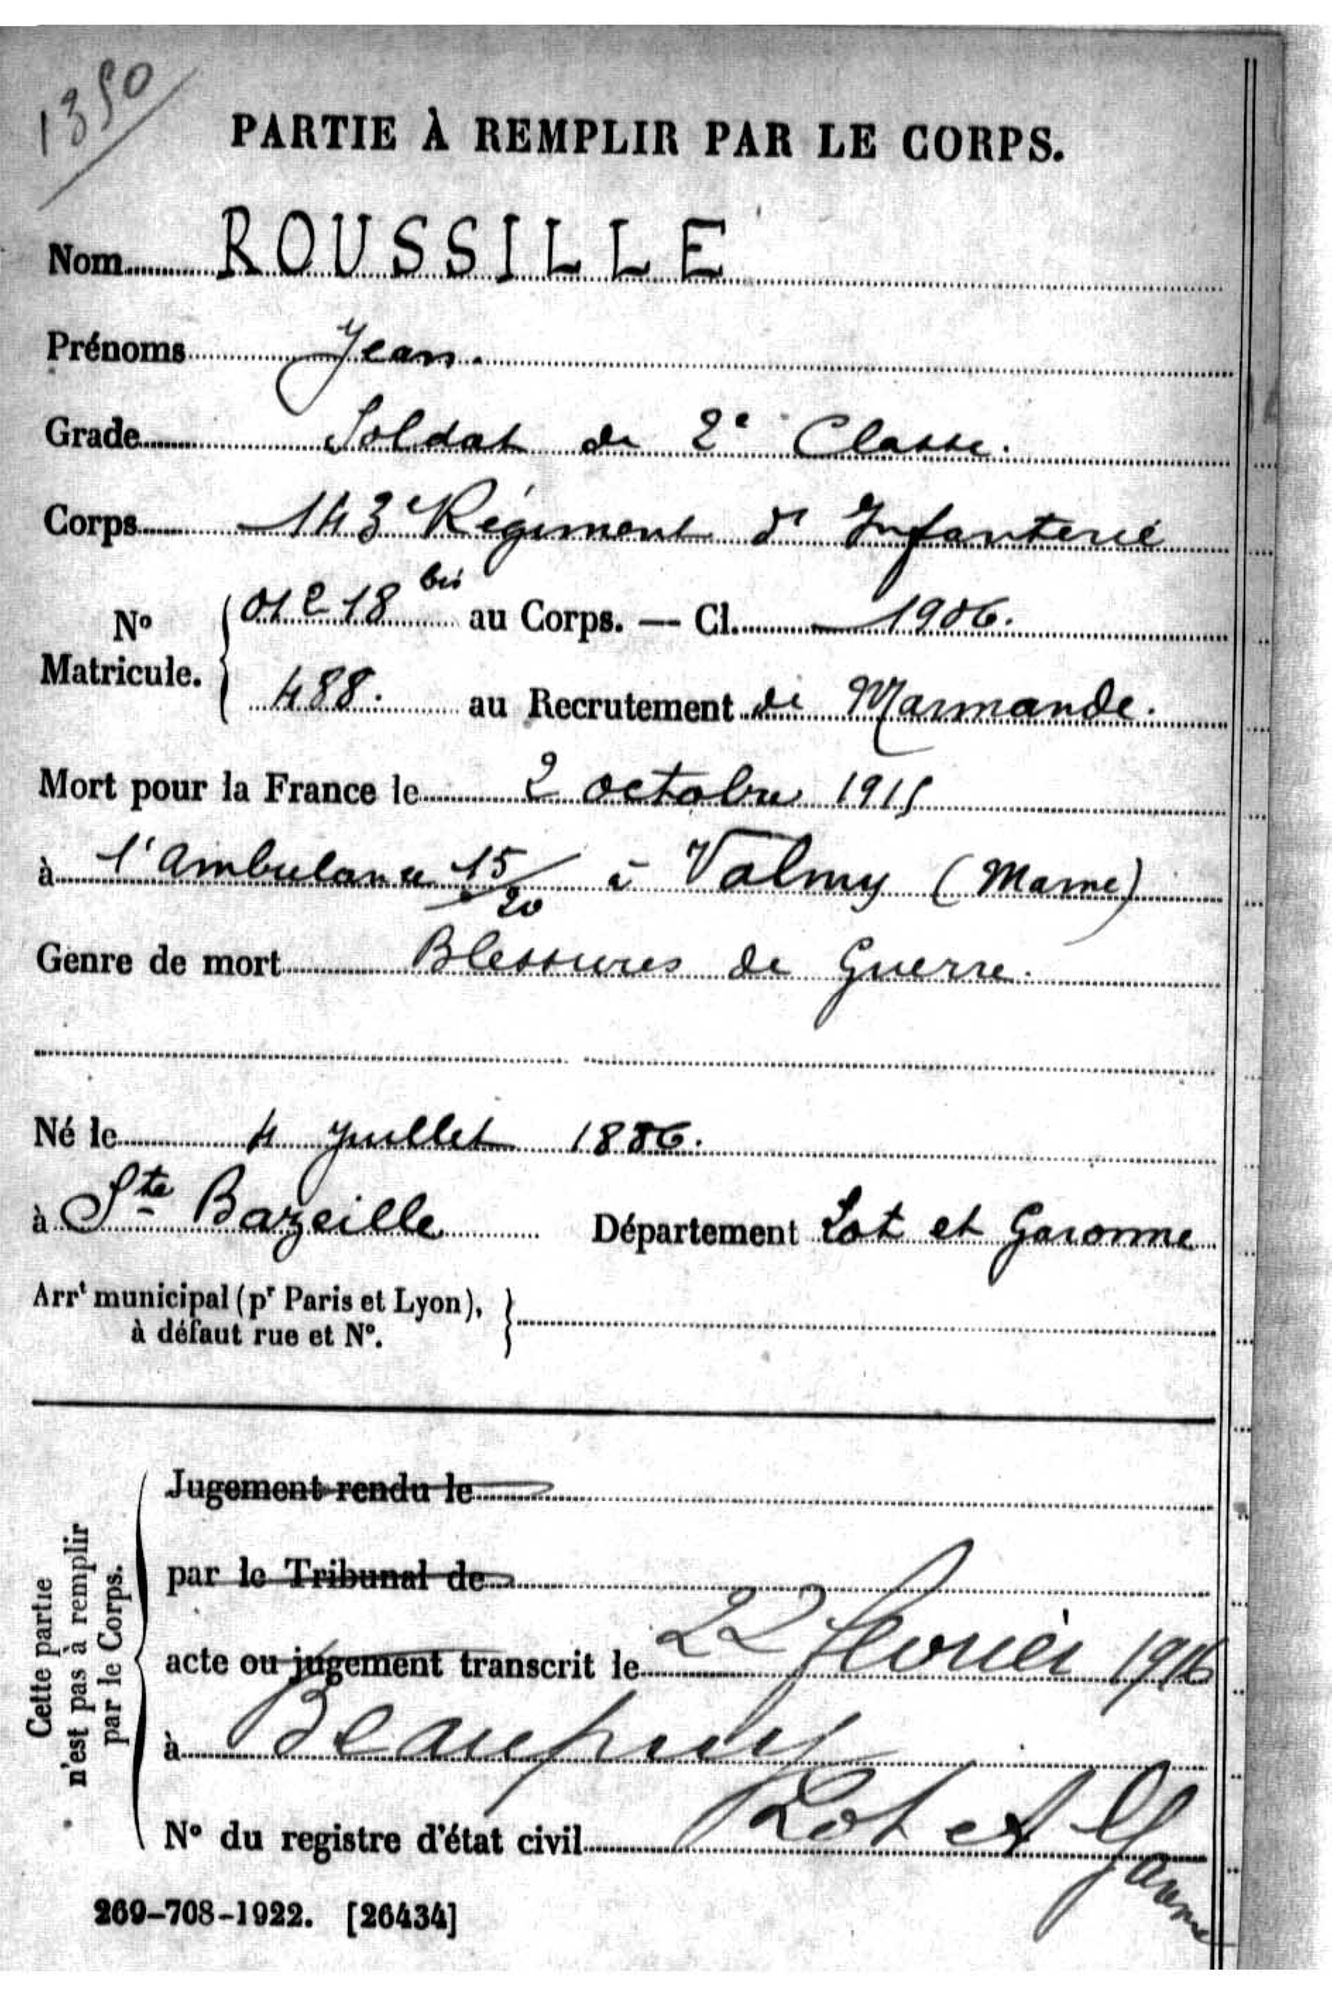 1350
PARTIE À REMPLIR PAR LE CORPS.
Nom ROUSSILLE
Prénoms Jean.
Grade Soldat de 2e Classe.
Corps 143e Régiment d' Infanterie
No Matricule. { 01218 bis au Corps. — Cl. 1906.
488. au Recrutement de Marmande.
Mort pour la France le 2 octobre 1915
à l'ambulance 15/20 à Valmy (Marne)
Genre de mort Blessures de Guerre.
Né le 4 Juillet 1886.
à Ste Bazeille Département Lot et Garonne
Arrt municipal (pr Paris et Lyon), }
à défaut rue et No.
Cette partie
n'est pas à remplir
par le Corps.
Jugement rendu le
par le Tribunal de
acte ou jugement transcrit le 22 février 1916
à Beaupuy
No du registre d'état civil Lot et Garonne
269-708-1922. [26434]